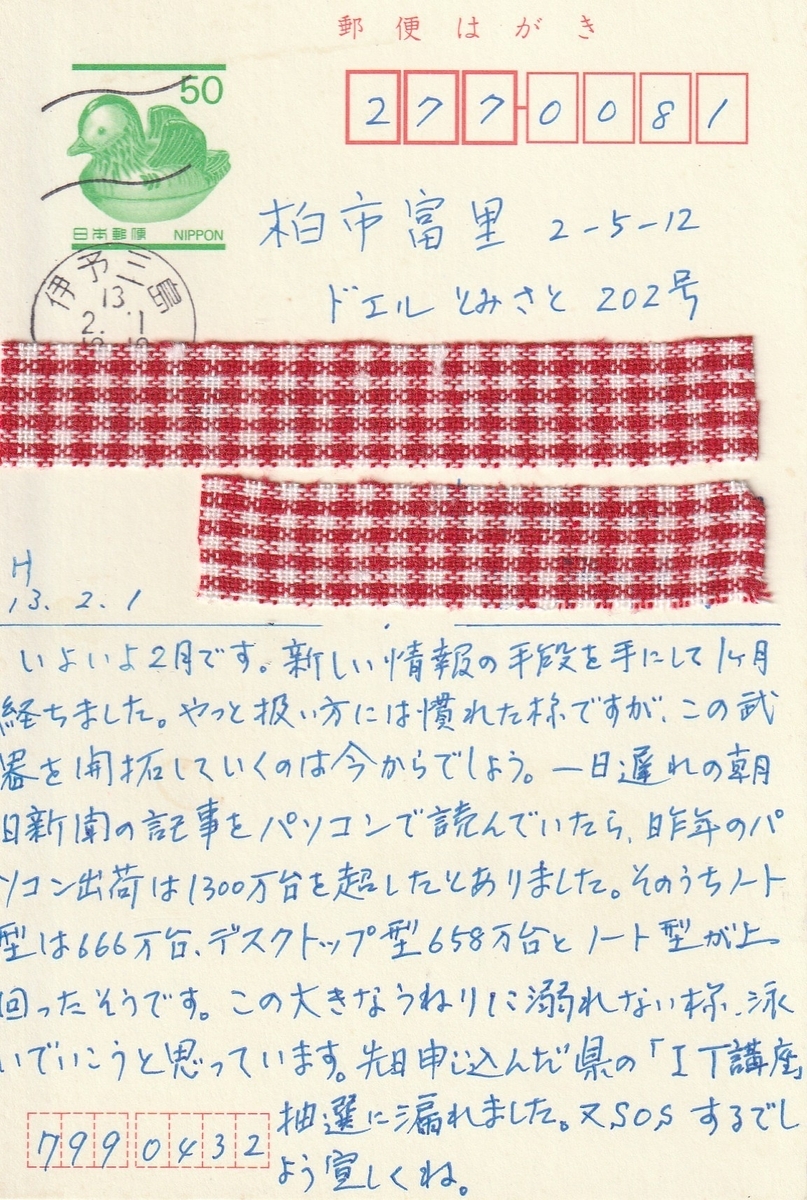 郵便はがき
50
日本郵便 NIPPON
2770081
柏市富里 2-5-12
ドエルとみさと 202号
伊予三島
13
2. .1
H
13.2.1
いよいよ2月です。新しい情報の手段を手にして1ヶ月
経ちました。やっと扱い方には慣れた様ですが、この武
器を開拓していくのは今からでしょう。一日遅れの朝
日新聞の記事をパソコンで読んでいたら、昨年のパ
ソコン出荷は1300万台を超したとありました。そのうちノート
型は666万台、デスクトップ型658万台とノート型が上
回ったそうです。この大きなうねりに溺れない様、泳
いでいこうと思っています。先日申し込んだ県の「IT講座」
抽選に漏れました。又SOSするでし
ょう宜しくね。
7990432